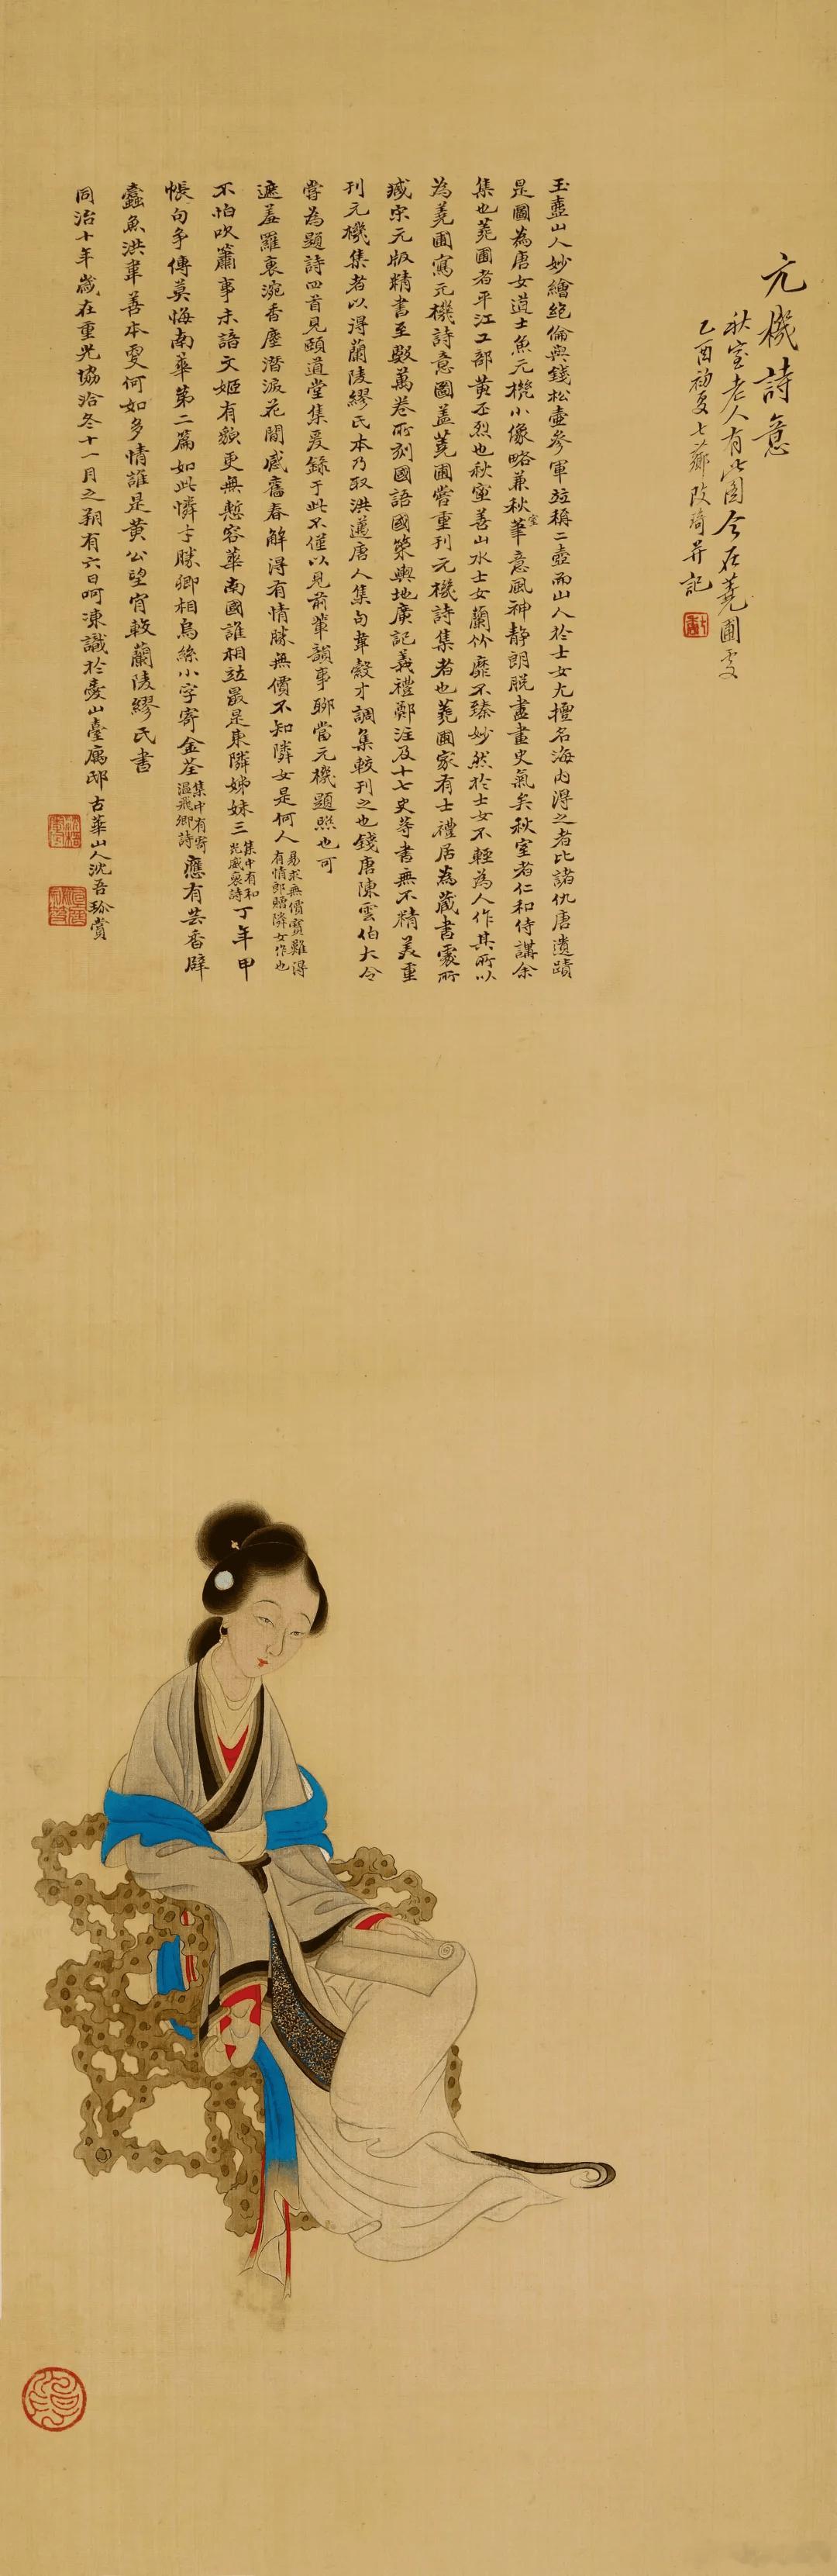 元機詩意
秋室老人有此圖今在蕘圃處
乙酉初夏七薌改琦并記
玉壺山人妙繪絕倫與錢松壺參軍竝稱二壺而山人於士女尤擅名海內得之者比諸仇唐遺蹟
是圖為唐女道士魚元機小像略兼秋室筆意風神靜朗脫盡畫史氣矣秋室者仁和侍講余
集也蕘圃者平江工部黃丕烈也秋室善山水士女蘭竹靡不臻妙然於士女不輕為人作其所以
為蕘圃寫元機詩意圖蓋蕘圃嘗重刊元機詩集者也蕘圃家有士禮居為藏書處所
藏宋元版精書至數萬卷所刻國語國策輿地廣記義禮鄭注及十七史等書無不精美重
刊元機集者以得蘭陵繆氏本乃取洪邁唐人集句韋縠才調集較刊之也錢唐陳雲伯大令
嘗為題詩四首見頤道堂集爰錄于此不僅以見前輩韻事聊當元機題照也可
遮羞羅褏浣香塵潛淚花間感舊春解得有情勝無價不知隣女是何人易求無價寶難得有情郎贈隣女作也
不怕吹簫事未諳文姬有貌更無慙容華南國誰相竝最是東隣姊妹三集中有和光威裒詩丁年甲
帳句爭傳莫悔南華第二篇如此憐才勝卿相烏絲小字寄金荃集中有寄溫飛卿詩應有芸香辟
蠹魚洪韋善本更何如多情誰是黃公望宵較蘭陵繆氏書
同治十年歲在重光協洽冬十一月之朔有六日呵凍識於夔山臺寓邸古華山人沈吾珍賞